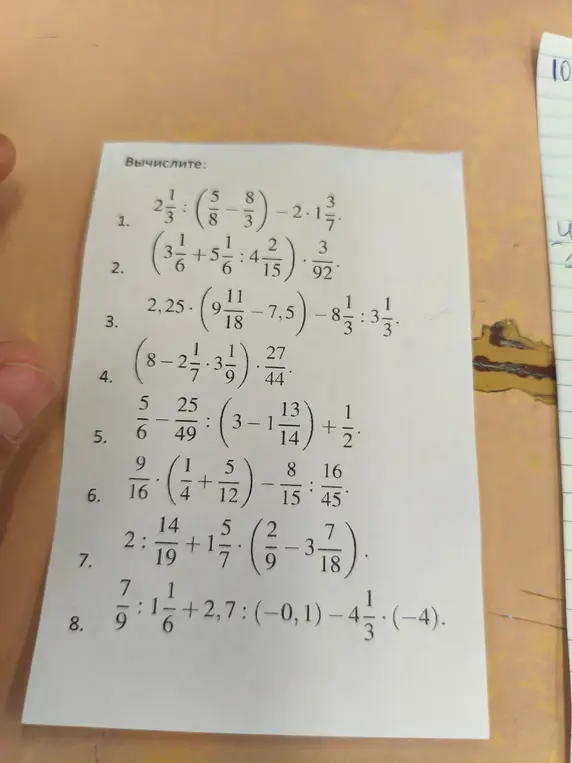 Вычислите:
1. 2 1/3 : (5/8 − 8/3) − 2 · 1 3/7.
2. (3 1/6 + 5 1/6 : 4 2/15) · 3/92.
3. 2,25 · (9 11/18 − 7,5) − 8 1/3 : 3 1/3.
4. (8 − 2 1/7 · 3 1/9) · 27/44.
5. 5/6 − 25/49 : (3 − 1 13/14) + 1/2.
6. 9/16 · (1/4 + 5/12) − 8/15 : 16/45.
7. 2 : 14/19 + 1 5/7 · (2/9 − 3 7/18).
8. 7/9 : 1 1/6 + 2,7 : (−0,1) − 4 1/3 · (−4).
10